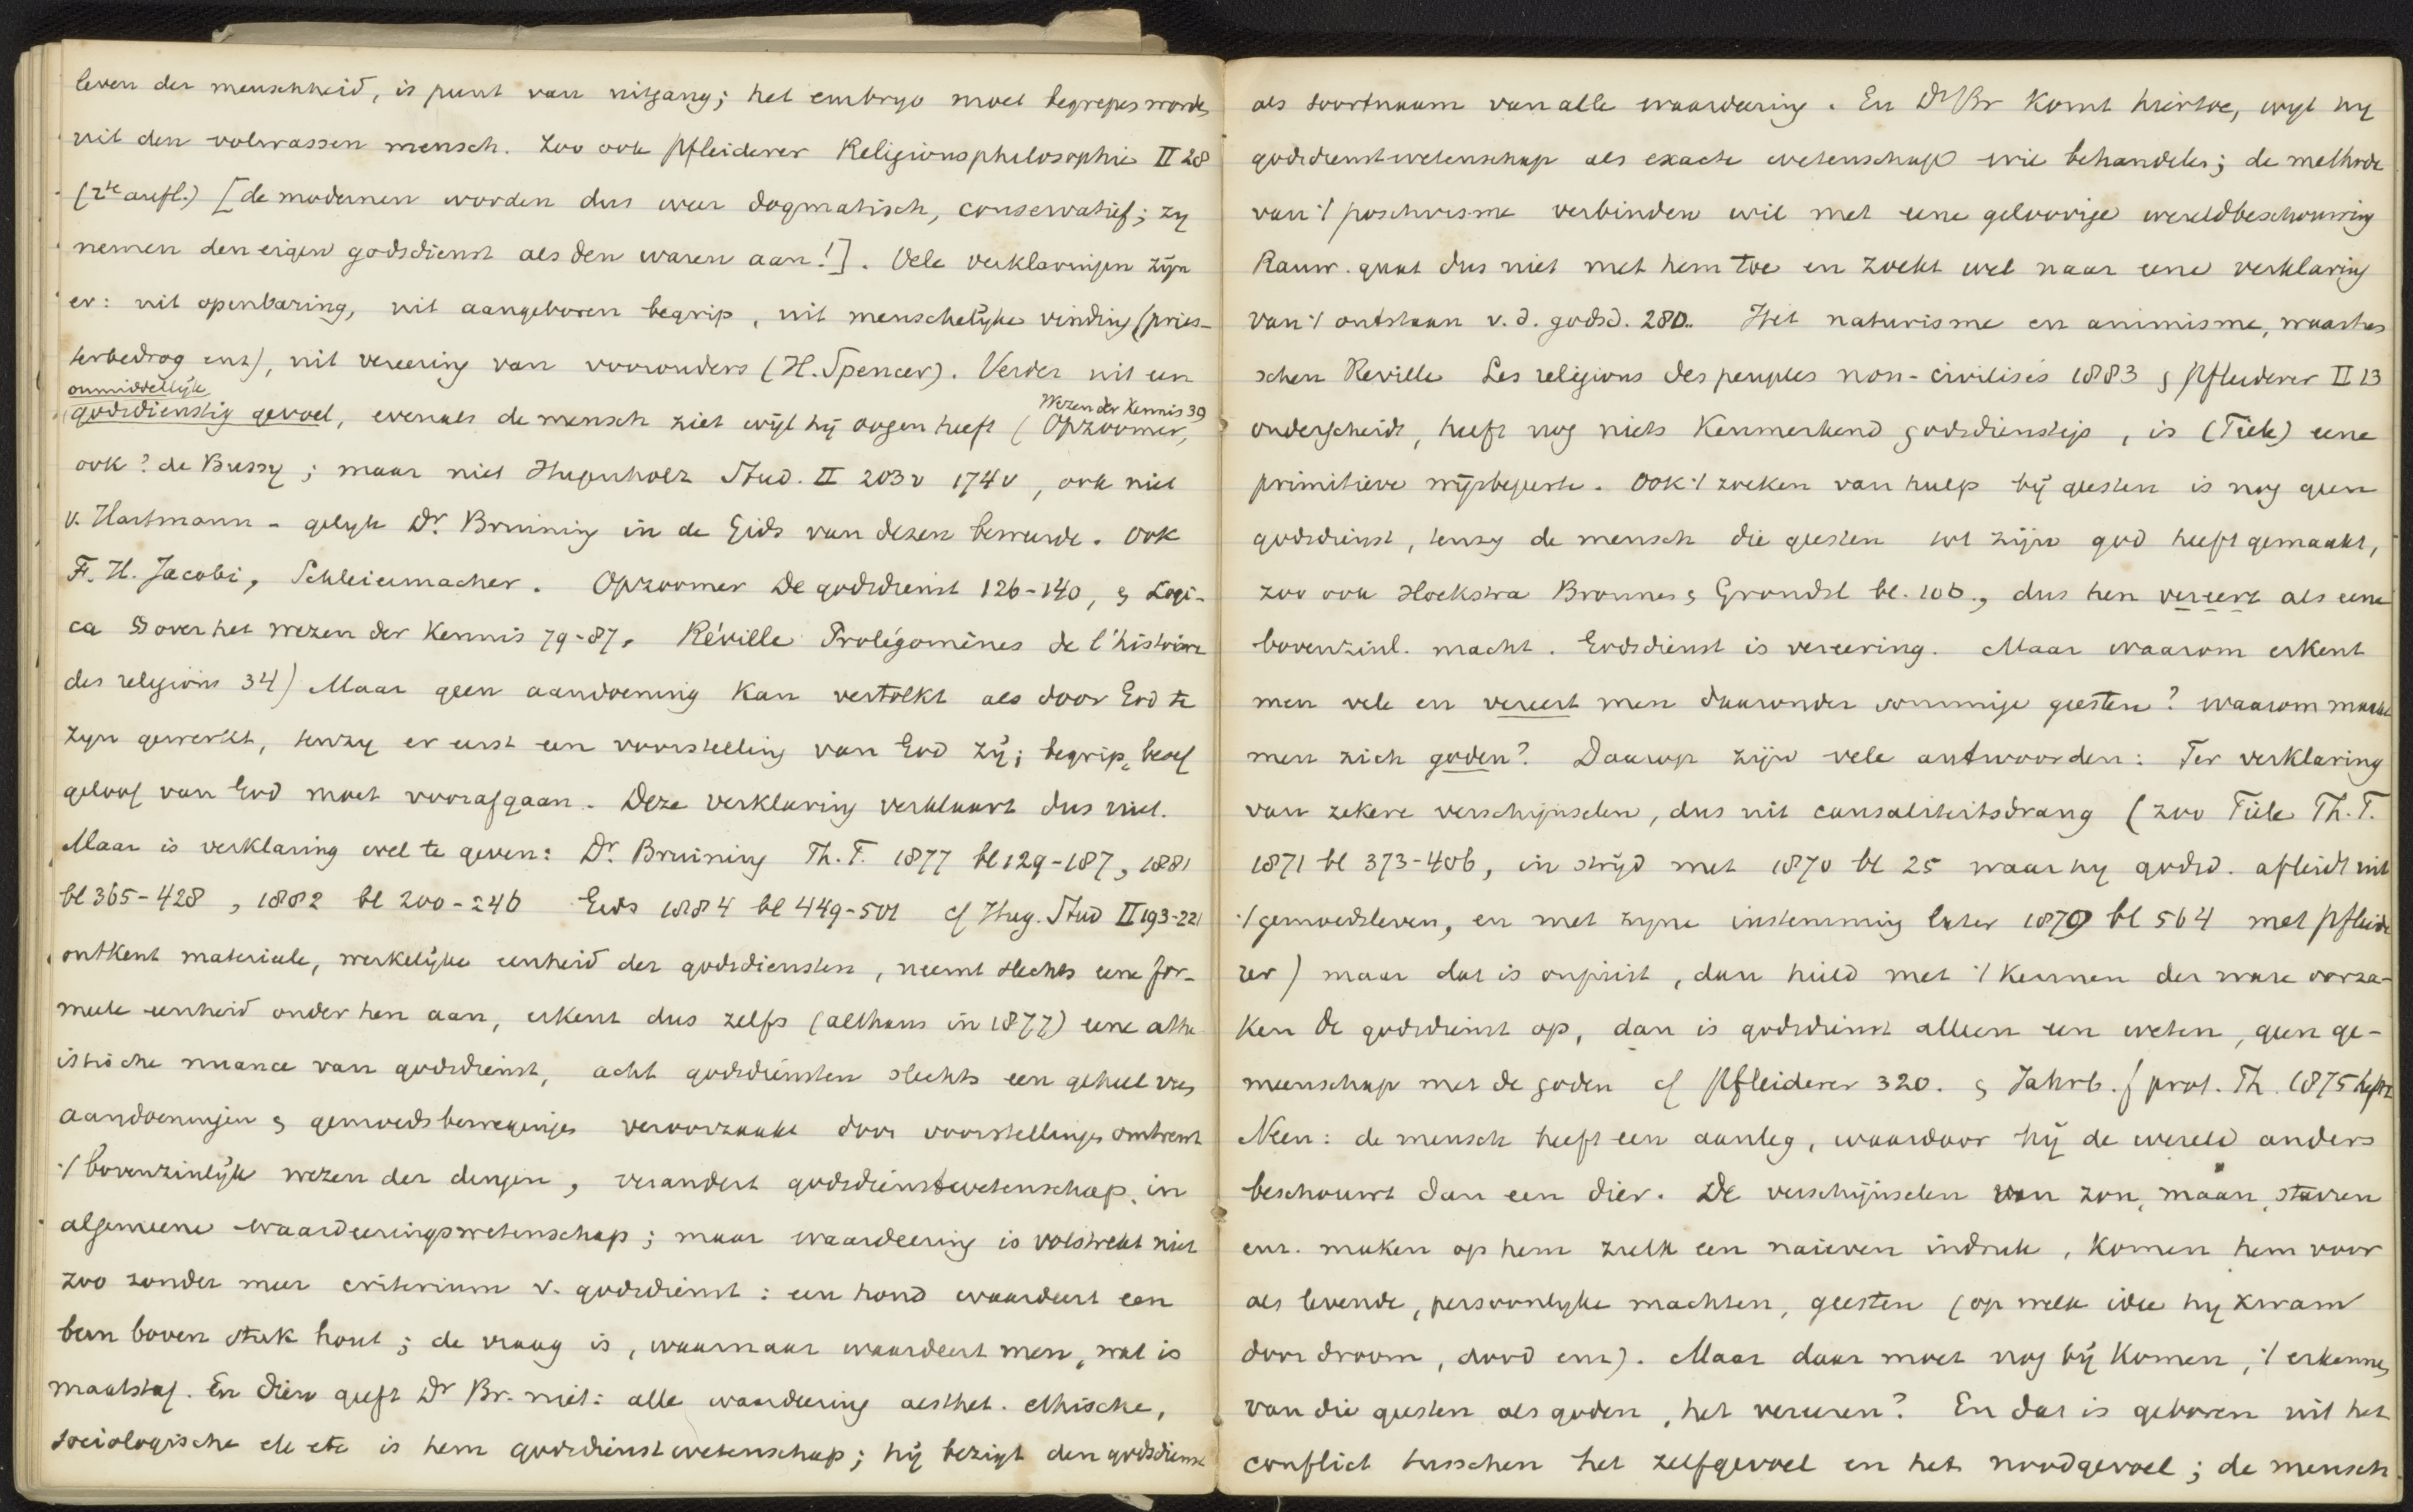 leven der menschheid, is punt van uitgang; het embryo moet begrepen worden
uit den volwassen mensch. Zoo ook Pfleiderer Religionsphilosophie II 28
(2te aufl.) [de modernen worden dus weer dogmatisch, conservatief; zy
nemen den eigen godsdienst als den waren aan!]. Vele verklaringen zijn
er: uit openbaring, uit aangeboren begrip, uit menschelyke vinding (pries-
terbedrog enz), uit vereering van voorouders (H. Spencer). Verder uit een
onmiddellijk
godsdienstig gevoel, evenals de mensch ziet wijl hij oogen heeft (Opzoomer, Wezen der Kennis 39
ook? de Bussy; maar niet Hugenholz Stud. II 203v 174v, ook niet
v. Hartmann - gelyk Dr. Bruining in de Gids van dezen beweerde. Ook
F. H. Jacobi, Schleiermacher. Opzoomer De godsdienst 126-140, & Logi-
ca over het wezen der Kennis 79-87. Réville Prolégomènes de l'histoire
des religions 34) Maar geen aandoening kan vertolkt als door God te
zyn gewerkt, tenzy er eerst een voorstelling van God zij; begrip, besef
geloof van God moet voorafgaan. Deze verklaring verklaart dus niet.
Maar is verklaring wel te geven: Dr. Bruining Th. T. 1877 bl 129-187, 1881
bl 365-428, 1882 bl 200-246 Gids 1884 bl 449-501 cf Hug. Stud II 193-221
ontkent materieele, werkelijke eenheid der godsdiensten, neemt slechts eene for-
meele eenheid onder hen aan, erkent dus zelfs (althans in 1877) eene athe-
istische nuance van godsdienst, acht godsdiensten slechts een geheel van
aandoeningen & gemoedsbewegingen veroorzaakt door voorstellingen omtrent
't bovenzinlijk wezen der dingen, verandert godsdienstwetenschap in
algemeene waardeeringswetenschap; maar waardeering is volstrekt niet
zoo zonder meer criterium v. godsdienst: een hond waardeert een
been boven stuk hout; de vraag is, waarnaar waardeert men, wat is
maatstaf. En dien geeft Dr Br. niet: alle waardeering aesthet. ethische,
sociologische etc etc is hem godsdienstwetenschap; hij bezigt den godsdienst
als soortnaam van alle waardeering. En Dr Br komt hiertoe, wyl hy
godsdienstwetenschap als exacte wetenschap wil behandelen; de methode
van 't positivisme verbinden wil met eene geloovige wereldbeschouwing
Rauw. geeft dus niet met hem toe en zoekt wel naar eene verklaring
van 't ontstaan v. d. godsd. 280. Het naturisme en animisme, waartus-
schen Reville Les religions des peuples non-civilisés 1883 & Pfleiderer II 13
onderscheidt, heeft nog niets kenmerkend godsdienstigs, is (Tiele) eene
primitieve wijsbegeerte. Ook 't zoeken van hulp bij geesten is nog geen
godsdienst, tenzy de mensch die geesten tot zijn god heeft gemaakt,
zoo ook Hoekstra Bronnen & Grondsl bl. 106., dus hen vereert als eene
bovenzinl. macht. Godsdienst is vereering. Maar waarom erkent
men vele en vereert men daaronder sommige geesten? waarom maakt
men zich goden? Daarop zijn vele antwoorden: Ter verklaring
van zekere verschijnselen, dus uit causaliteitsdrang (zoo Tiele Th. T.
1871 bl 373-406, in strijd met 1870 bl 25 waar hy godsd. afleidt uit
't gemoedsleven, en met zyne instemming later 1879 bl 564 met Pfleide-
rer) maar dat is onjuist, dan hield met 't kennen der ware oorza-
ken de godsdienst op, dan is godsdienst alleen een weten, geen ge-
meenschap met de goden cf Pfleiderer 320. & Jahrb. f prot. Th. 1875
Neen: de mensch heeft een aanleg, waardoor hij de wereld anders
beschouwt dan een dier. De verschijnselen van zon, maan, sterren
enz. maken op hem zulk een naieven indruk, komen hem voor
als levende, persoonlyke machten, geesten (op welk idee hy kwam
door droom, dood enz). Maar daar moet nog bij komen, 't erkennen
van die geesten als goden, het vereeren? En dat is geboren uit het
conflict tusschen het zelfgevoel en het noodgevoel; de mensch